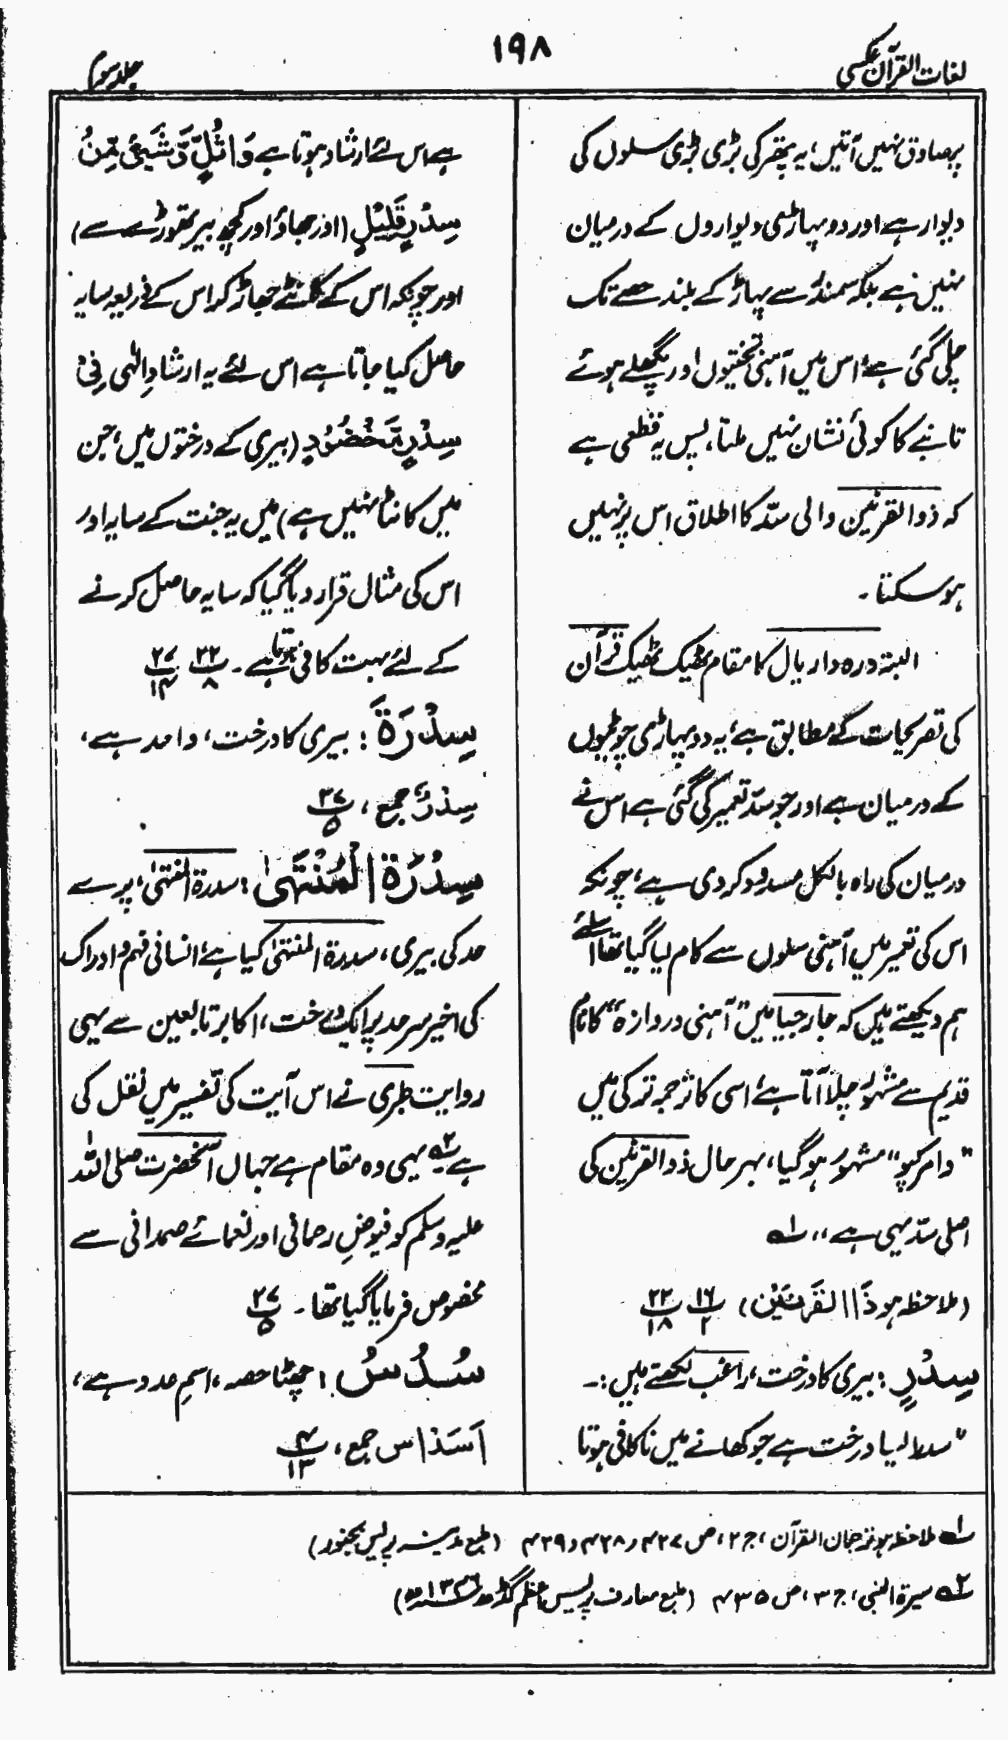 لغات القرآن عکسی
۱۹۸
جلد سوم
پر صادق نہیں آتیں، یہ پتھر کی بڑی بڑی سلوں کی
دیوار ہے اور دو پہاڑی دیواروں کے درمیان
نہیں ہے بلکہ سمندر سے پہاڑ کے بلند حصے تک
چلی گئی ہے، اس میں آہنی تختیوں اور پگھلے ہوئے
تانبے کا کوئی نشان نہیں ملتا، پس یہ قطعی ہے
کہ ذوالقرنین والی سد کا اطلاق اس پر نہیں
ہو سکتا۔
البتہ درہ داریال کا مقام ٹھیک ٹھیک قرآن
کی تصریحات کے مطابق ہے، یہ دو پہاڑی چوٹیوں
کے درمیان ہے اور جو سد تعمیر کی گئی ہے اس نے
درمیان کی راہ بالکل مسدود کر دی ہے، چونکہ
اس کی تعمیر میں آہنی سلوں سے کام لیا گیا تھا اسلئے
ہم دیکھتے ہیں کہ جارجیا میں "آہنی دروازہ" کا نام
قدیم سے مشہور چلا آتا ہے، اسی کا ترجمہ ترکی میں
"دامرکپو" مشہور ہو گیا، بہر حال ذوالقرنین کی
اصلی سد یہی ہے،، ۱؎
(ملاحظہ ہو ذَا الْقَرْنَيْنِ) ۱۶/۲ ۲۲/۱۸
سِدْرٍ : بیری کا درخت، راغب لکھتے ہیں:۔
"سدر ایسا درخت ہے جو کھانے میں ناکافی ہوتا
ہے اس لئے ارشاد ہوتا ہے وَاَثْلٍ وَّشَیْءٍ مِّنْ
سِدْرٍ قَلِیْلٍ (اور جھاؤ اور کچھ بیر تھوڑے سے)
اور چونکہ اس کے کانٹے جھاڑ کر اس کے ذریعہ سایہ
حاصل کیا جاتا ہے اس لئے یہ ارشادِ الٰہی فِیْ
سِدْرٍ مَّخْضُوْدٍ (بیری کے درختوں میں، جن
میں کانٹا نہیں ہے) میں یہ جنت کے سایہ اور
اس کی مثال قرار دیا گیا کہ سایہ حاصل کرنے
کے لئے بہت کافی ہوتا ہے۔ ۲۲/۸ ۲۷/۱۴
سِدْرَةِ : بیری کا درخت، واحد ہے،
سِدْرٌ جمع، ۲۷/۵
سِدْرَةِ الْمُنْتَهٰى : سدرۃ المنتہیٰ، پرے
حد کی بیری، سدرۃ المنتہیٰ کیا ہے، انسانی فہم و ادراک
کی اخیر سرحد پر ایک درخت، اکابر تابعین سے یہی
روایت طبری نے اس آیت کی تفسیر میں نقل کی
ہے ۲؎ یہی وہ مقام ہے جہاں آنحضرت صلی اللہ
علیہ وسلم کو فیوضِ رحمانی اور نعمائے صمدانی سے
مخصوص فرمایا گیا تھا۔ ۲۷/۵
سُدُسُ : چھٹا حصہ، اسمِ عدد ہے،
اَسْدَاس جمع، ۴/۱۳
۱؎ ملاحظہ ہو ترجمان القرآن، ج ۲، ص ۴۲۷ و ۴۲۸ و ۴۲۹ (طبع مدینہ پریس بجنور)
۲؎ سیرۃ النبی، ج ۳، ص ۴۳۵ (طبع معارف پریس اعظم گڑھ